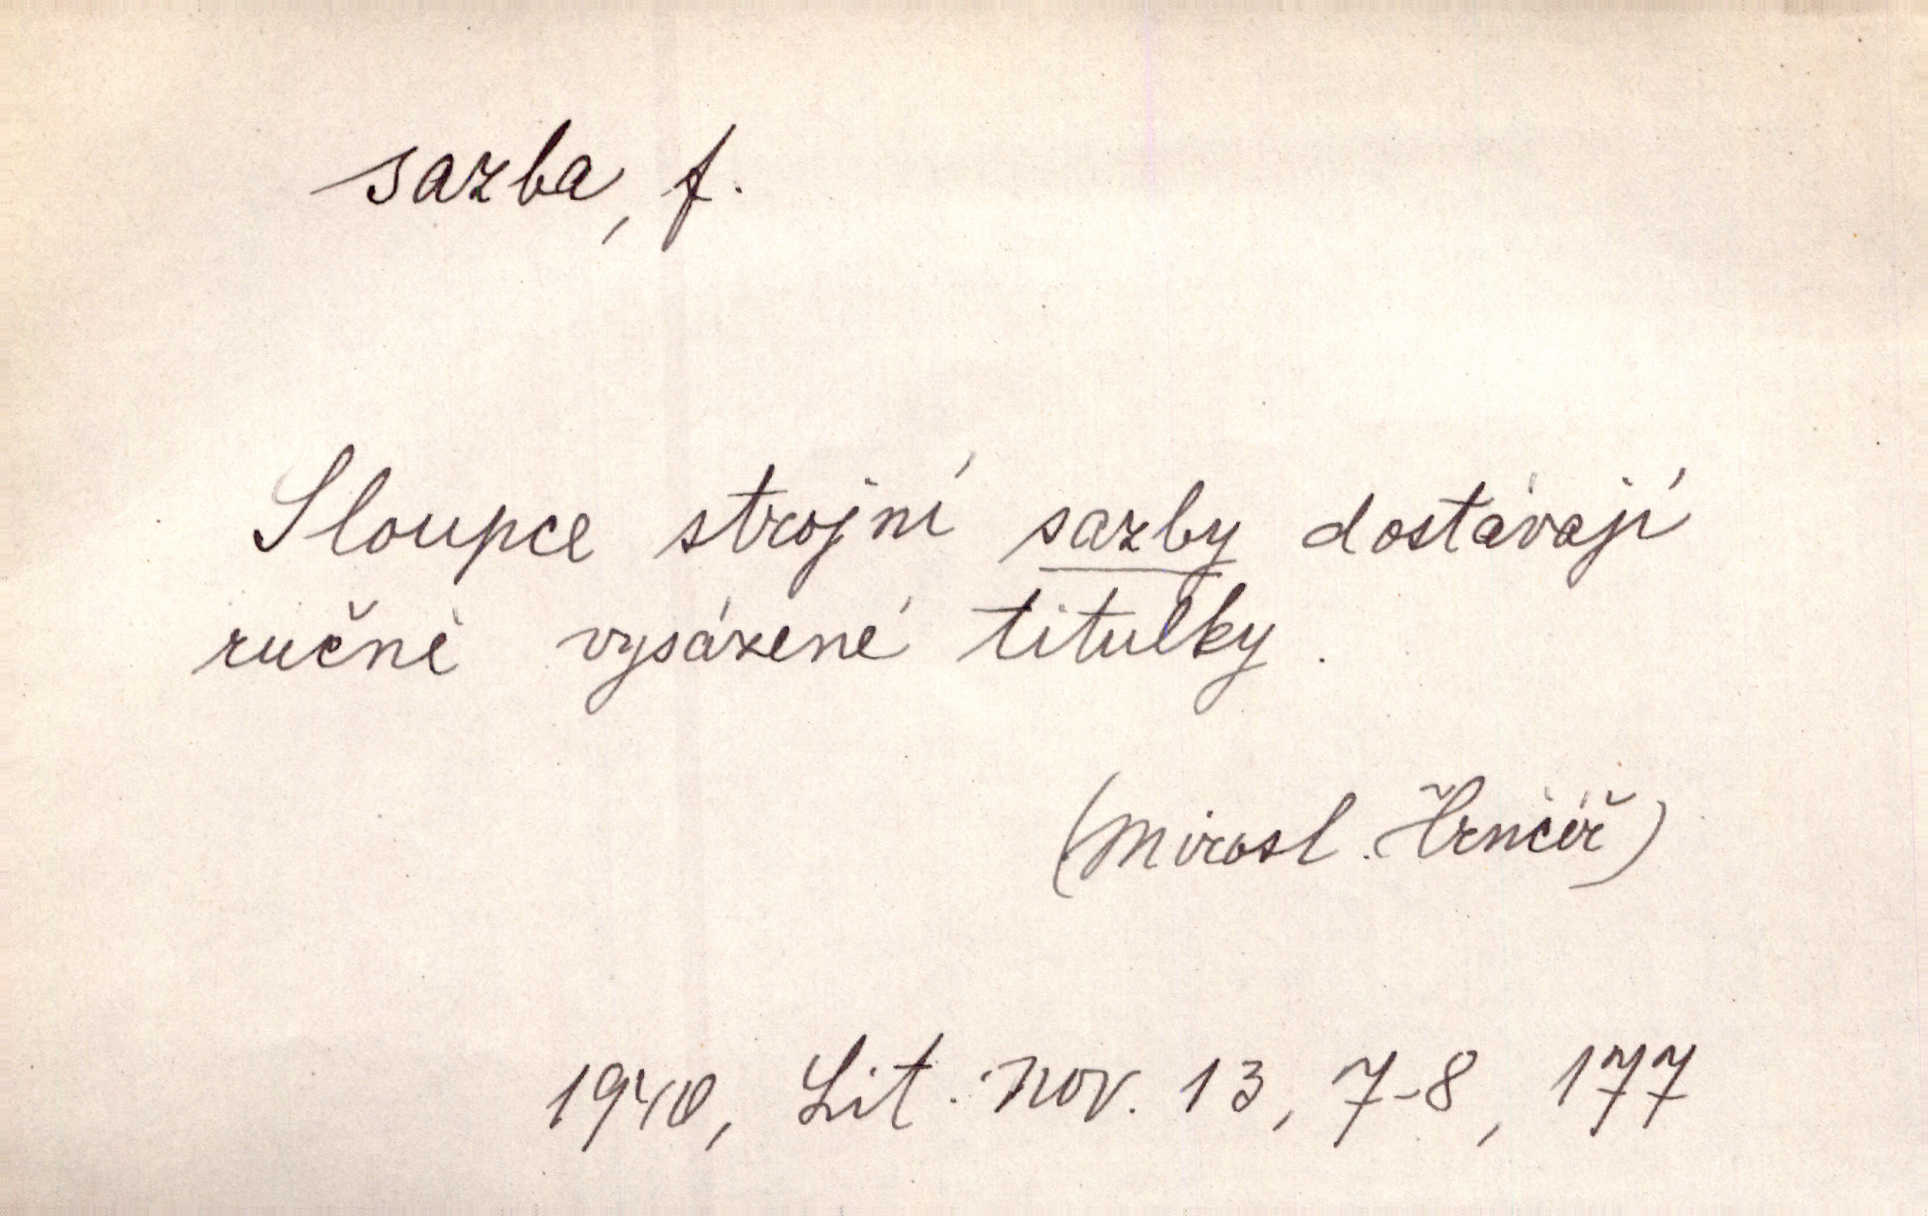 sazba, f.
Sloupce strojní sazby dostávají
ručně vysázené titulky.
(Mirosl. Hrnčíř)
1940, Lit. nov. 13, 7-8, 177